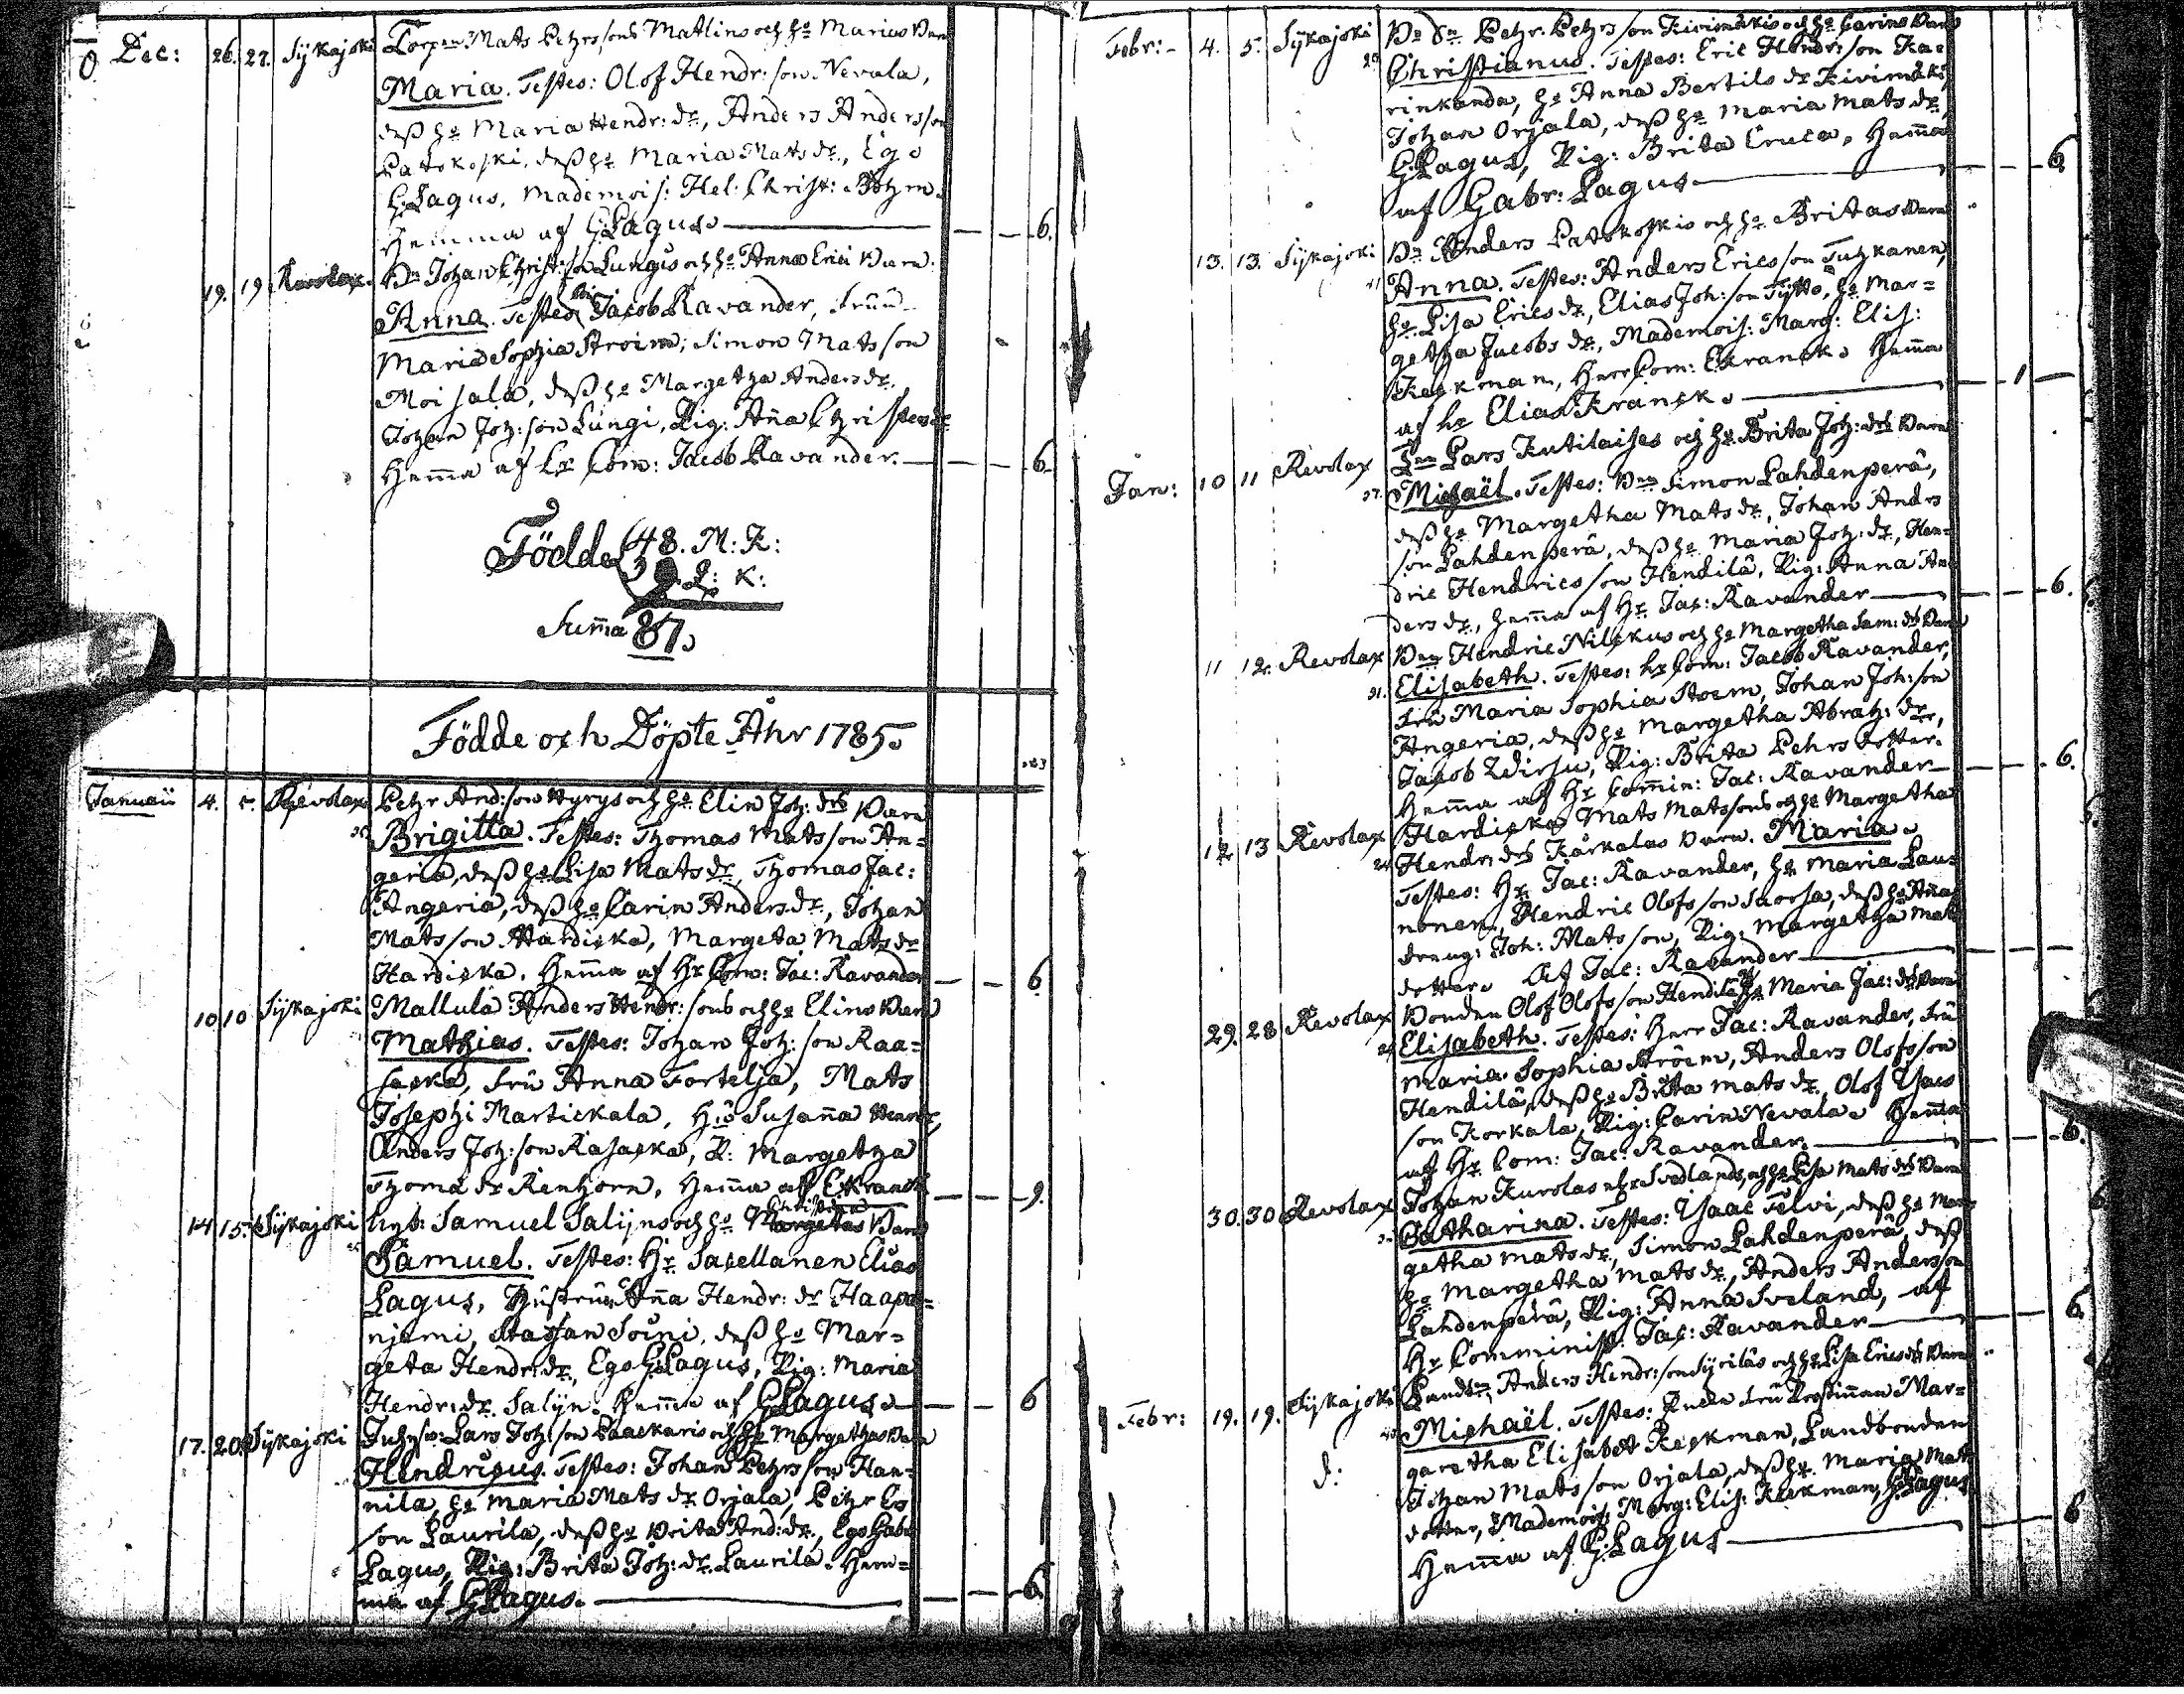 Dec: 26. 27. Sijkajoki Torp: Mats Pehrssons Matlins och ho Marias Barn
Maria. Testes: Olof Hendr: son Nevala,
dess ho Maria Hendr: dr, Anders Andersson
Patokoski, dess ho Maria Mats dr, Ego
G: Lagus, Mademois: Hel: Christ:
Hemma af G: Lagus. 6.
19. 19 Revolax. Bn Johan Christ: son Lungis och ho Annas Barn.
Anna. Testes: Jacob Ravander, Fruu
Maria Sophia Ström; Simon Matsson
Moisala, dess ho Margetha Anders dr.
Johan Joh: son Lungi, Pig: Aña Christers dr
Hem̄a af Hr Com: Jacob Ravander. 6
Födde 48. M: K:
39. Q: K:
Sum̄a 87.
Födde och Döpte Åhr 1785.
Januarii 4. 5. Revolax Pehr And: son Hyrys och ho Elin Joh: drs Barn
Brigitta. Testes: Thomas Matsson An=
geria, dess ho Lisa Mats dr, Thomas Jac:
Angeria, dess ho Carin Anders dr, Johan
Matsson Hardicka, Margeta Mats dr
Hardicka. Hem̄a af Hr Com: Jac: Ravander 6
10 10 Sijkajoki Mallula Anders Hendr: sons och ho Elins Barn
Mathias. Testes: Johan Joh: son Raa=
sacka, Fru Anna Fortelja, Mats
Josephi Martickala, Hu Susan̄a Henr dr,
Anders Joh: son Rasacka, P: Margetha
Thomæ dr Renhorn, Hem̄a af EKranck 9.
14 15. Sijkajoki Samuel Salijns och ho Christina Margetas Barn
Samuel. Testes: Hr Sacellanen Elias
Lagus, Hustrun Aña Hendr: dr Haapa=
njemi, Staffan Soini, dess ho Mar=
geta Hendr: dr, Ego G: Lagus, Pig: Maria
Hendr: dr. Salijn. Hem̄a af G Lagus. 6
17. 20. Sijkajoki Lars Joh: son Paackaris och ho Margethas Barn
Hendricus. Testes: Johan Pehrsson Han=
nila, ho Maria Mats dr Orjala, Pehr
son Laurila, dess ho Brita And: dr, Ego Gabr:
Lagus, Pig: Brita Joh: dr. Laurila. Hem=
ma af G Lagus. 6.
Febr: 4. 5. Sijkajoki Bn Sn Pehr Pehrsson Kivimäkis och ho Carins Barn
Christianus. Testes: Eric Hendr: son Ka=
rinkanda, ho Anna Bertils dr Kivimäki,
Johan Orjala, dess ho Maria Mats dr,
G: Lagus, Pig: Brita Hem̄a
af Gabr: Lagus 6.
13. 13. Sijkajoki Bn Anders Patokoskis och ho Britas Barn
Anna. Testes: Anders Ericsson Tuhkanen,
ho Lisa Erics dr, Elias Joh: son Tytto, ho Mar=
getha Jacobs dr, Mademois: Marg: Elis:
Keckman, Herr Com: Ekranck. Hem̄a
af hr Elias Kranck. 1
Jan: 10 11 Revolax Lars Kutilaises och ho Brita Joh: drs Barn
Michaël. Testes: Bn Simon Lahdenperä,
dess ho Margetha Mats dr, Johan Anders
son Lahdenperä, dess ho Maria Joh: dr, Hen=
dric Hendricsson Hendilä, Pig: Anna An
ders dr, hem̄a af Hr Jac: Ravander 6.
11 12. Revolax Bn Hendric Nilckus och ho Margetha Sam: drs Barn
Elisabeth. Testes: hr Com: Jacob Ravander,
Fru Maria Sophia Stoem, Johan Joh: son
Angeria, dess ho Margetha Abrah: dr,
Jacob Pig: Brita Pehrs dotter.
Hem̄a af Hr Com̄in: Jac: Ravander 6.
12 13 Revolax Hardicka Mats Matssons och ho Margetha
Hendr: drs Kärkalas Barn. Maria.
Testes: Hr Jac: Ravander, ho Maria Lau=
nonen, Hendric Olofsson Saorsa, dess ho Aña
dreng: Joh: Matsson, Pig: Margetha Mats
dotter. Af Jac: Ravander
29. 28 Revolax Bonden Olof Olofsson Hendiläs och ho Maria Jac: drs Barn
Elisabeth. Testes: Herr Jac: Ravander, Fru
Maria Sophia Ströem, Anders Olofsson
Hendilä, dess ho Brita Mats dr, Olof Ysacs
son Korkala, Pig: Carin Nevala. Hem̄a
af Hr Com: Jac: Ravander. 6.
30. 30 Revolax Johan Kurolas och ho Lisa Mats drs Barn
Catharina. Testes: Ysaac Telvi, dess ho Mar
getha Mats dr, Simon Lahdenperä, dess
ho Margetha Mats dr, Anders Andersson
Lahdenperä, Pig: Anna Sveland, af
Hr Comminist: Jac: Ravander 6
Febr: 19. 19. Sijkajoki Landbn Anders Hendr: son Syriläs och ho Lisa Erics drs Barn
Michaël. Testes: Fru Prostin̄an Mar=
garetha Elisabet Keckman, Landbonden
Johan Matsson Orjala, dess ho Maria Mats
dotter, Mademois: Marg: Elis: Keckman, G: Lagus
Hem̄a af G: Lagus 6